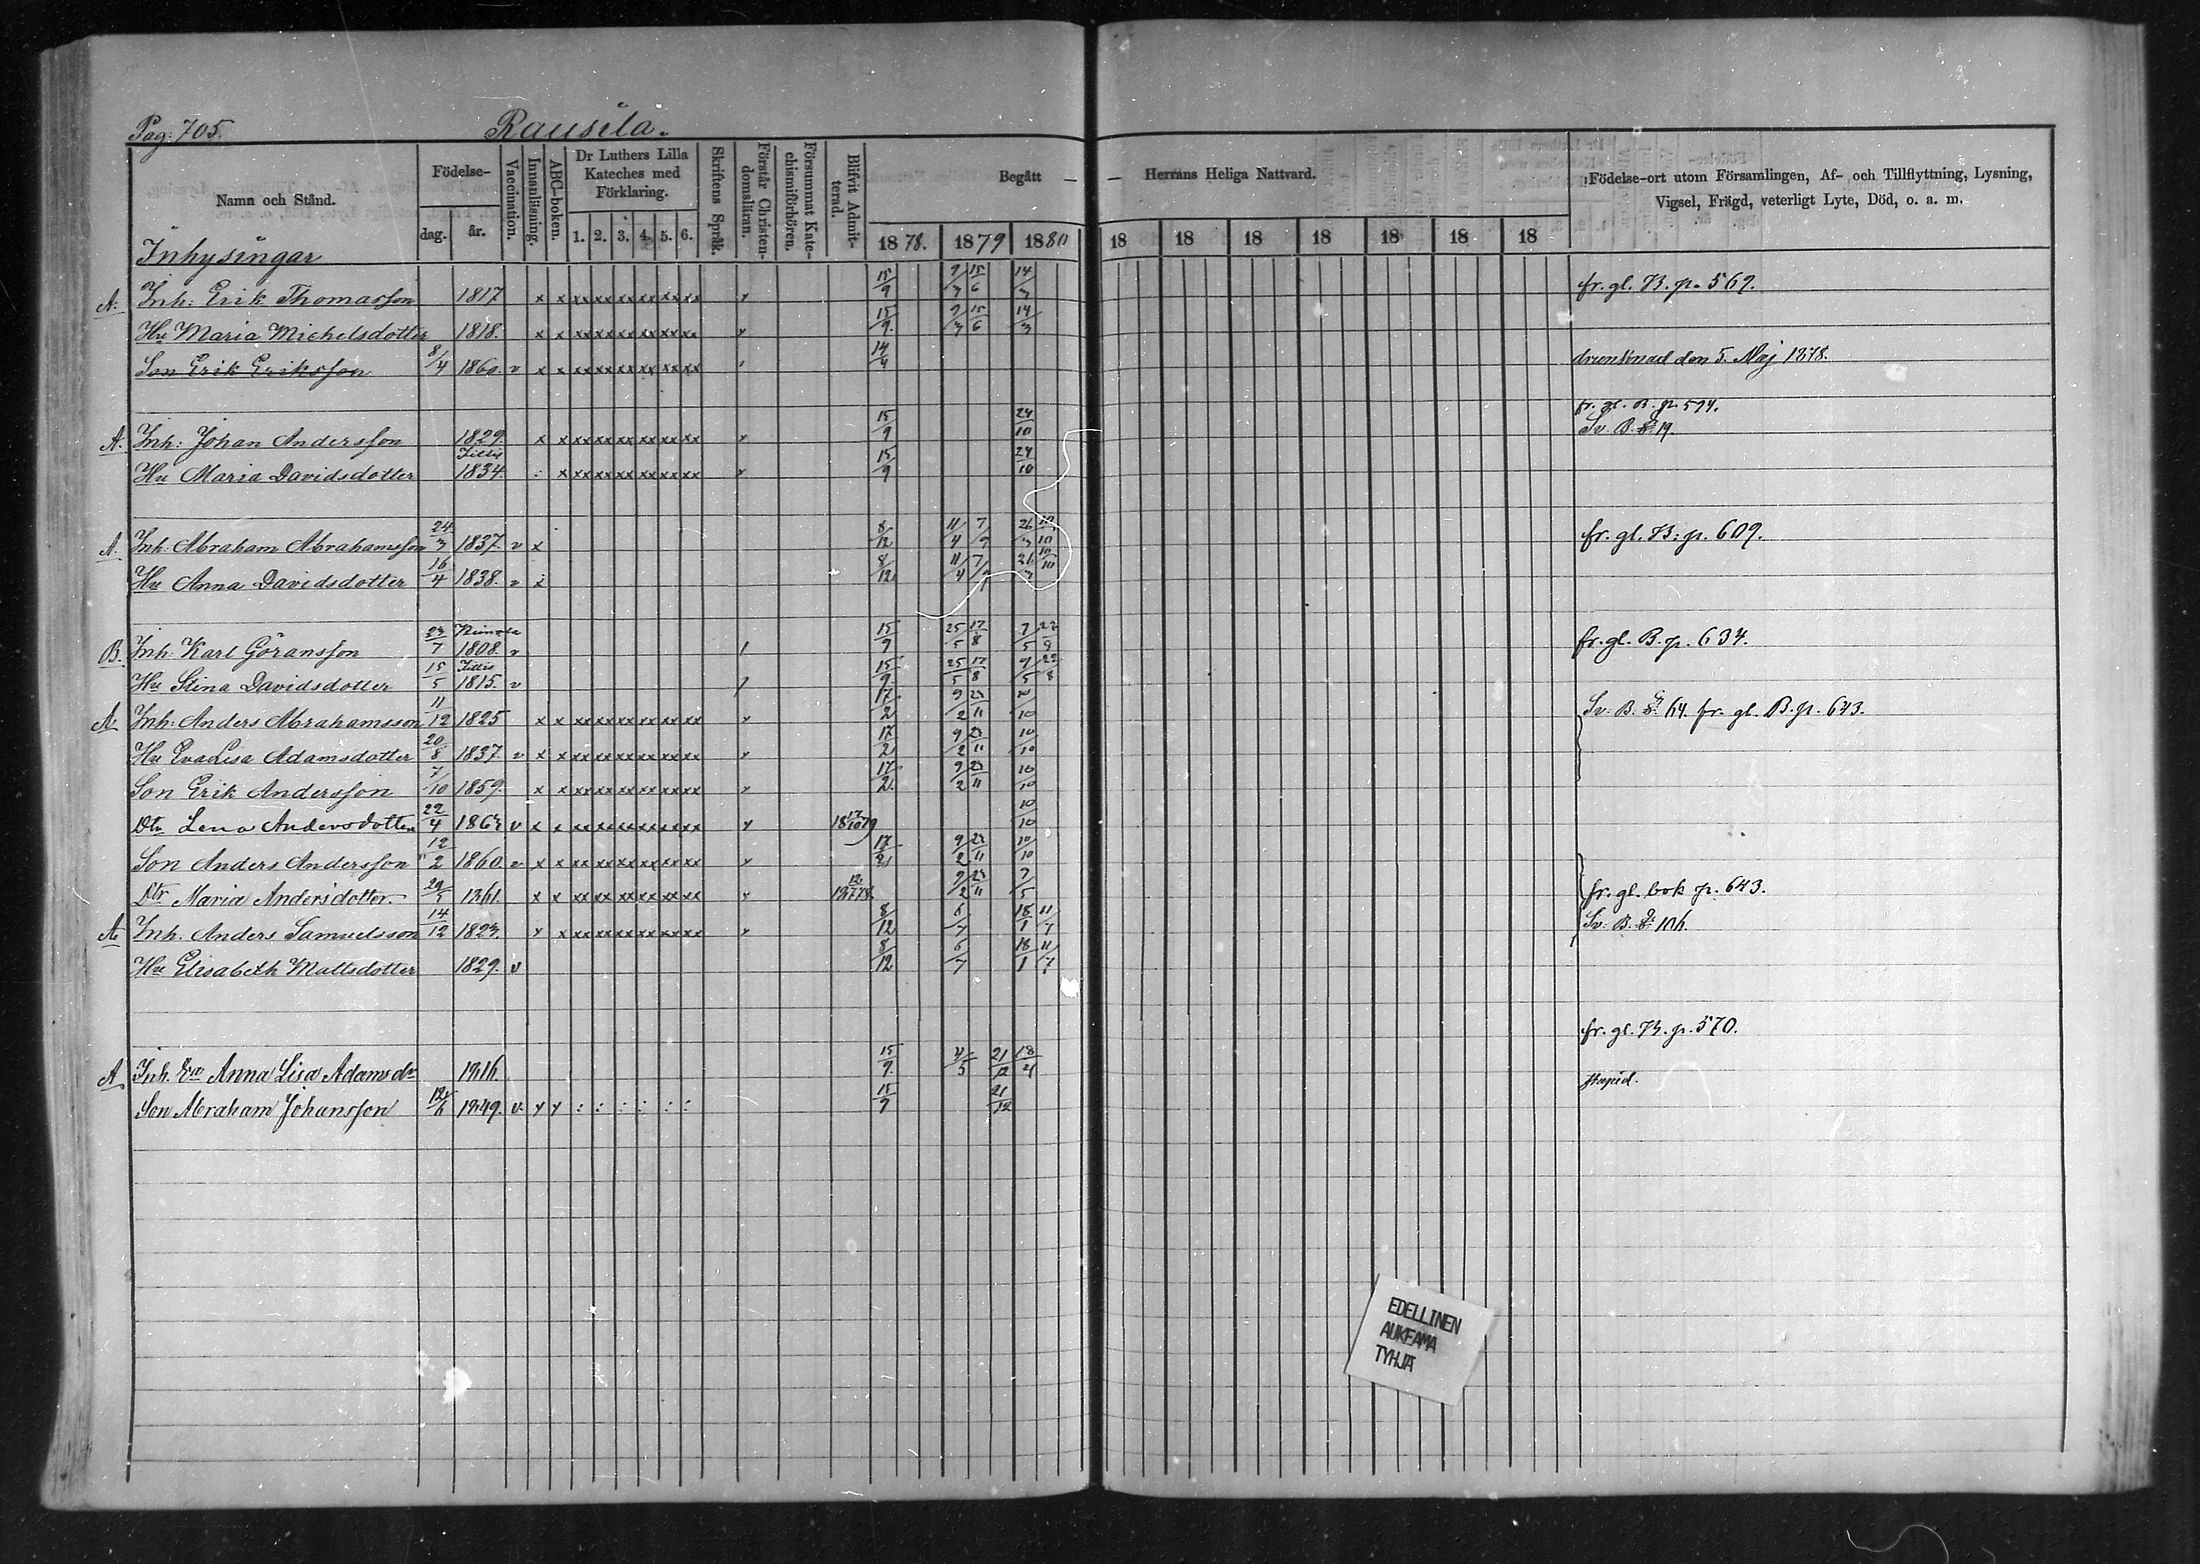 Pag: 705. Rausila.
Namn och Stånd. Födelse- dag. år. Vaccination. Innanläsning. ABC-boken. Dr Luthers Lilla Kateches med Förklaring. 1. 2. 3. 4. 5. 6. Skriftens Språk. Förstår Christen-domsläran. Försummat Kate-chismiförhören. Blifvit Admit-terad. Begått — — Herrans Heliga Nattvard. Födelse-ort utom Församlingen, Af- och Tillflyttning, Lysning,
Vigsel, Frägd, veterligt Lyte, Död, o. a. m.
1878. 1879 1880 18 18 18 18 18 18 18
Inhysingar
A. Inh: Erik Thomasson 1817 x x xx xx xx xx xx xx 15/9 9/3 15/6 14/3 fr. gl. B. p. 569.
Hu Maria Michelsdotter 1818. x x xx xx xx xx xx xx 15/9. 9/3 15/6 14/3
Son Erik Eriksson 8/4 1860. v x x xx xx xx xx xx xx 14/4 drunknad den 5. Maj 1878.
fr. gl. B. p. 594.
A. Inh: Johan Andersson 1829. x x xx xx xx xx xx xx 15/9 24/10 Sv. B. 19.
Hu Maria Davidsdotter 1834. : x xx xx xx xx xx xx 15/9 24/10
A. Inh: Abraham Abrahamsson 24/3 1837. v x 8/12 11/4 7/9 26/3 10/10 fr. gl. B. p. 609.
Hu Anna Davidsdotter 16/4 1838. v x 8/12 11/4 26/3 10/10
B. Inh: Karl Göransson 23/7 1808. v 15/9 25/5 17/8 fr. gl. B. p. 634.
Hu Stina Davidsdotter 15/5 1815. v 15/9. 25/5 17/8
A. Inh: Anders Abrahamsson 11/12 1825 x x xx xx xx xx xx xx 17/2 9/2 23/11 10/10 Sv. B. 64. fr. gl. B. p. 643.
Hu Eva Lisa Adamsdotter 20/8 1837. v x x xx xx xx xx xx xx 17/2 9/2 23/11 10/10
Son Erik Andersson 7/10 1859. x x xx xx xx xx xx xx 17/2. 9/2 23/11 10/10
Dtr Lena Andersdotter 22/4 v x x xx xx xx xx xx xx 10/10
Son Anders Andersson 12/2 1860. v x x xx xx xx xx xx xx 9/2 23/11 10/10
Dtr Maria Andersdotter 1861. x x xx xx xx xx xx xx 9/2 23/11 7/5 fr. gl. bok p. 643.
A. Inh. Anders Samuelsson 14/12 x x xx xx xx xx xx xx 8/12 6/7 18/1 11/7 Sv. B. 106.
Hu Elisabeth Mattsdotter 1829. v 8/12 6/7 18/1 11/7
fr. gl. B. p. 570.
A Inh. Ea Anna Lisa Adamsdr 1816. 15/9. 4/5 21/12 18/4
stupid.
Son Abraham Johansson 12/6 1849. v. x x : : : : : : 15/9 21/12
EDELLINEN
AUKEAMA
TYHJÄ